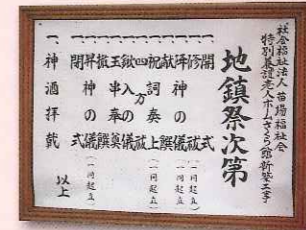 社会福祉法人 苗場福祉会
特別養護老人ホームさくら館新築工事
地鎮祭次第
一、開式
一、修祓（一同起立）
一、降神の儀（一同起立）
一、献饌
一、祝詞奏上（一同起立）
一、四方祓
一、鍬入の儀
一、玉串奉奠
一、撤饌
一、昇神の儀（一同起立）
一、閉式
一、神酒拝戴
以上